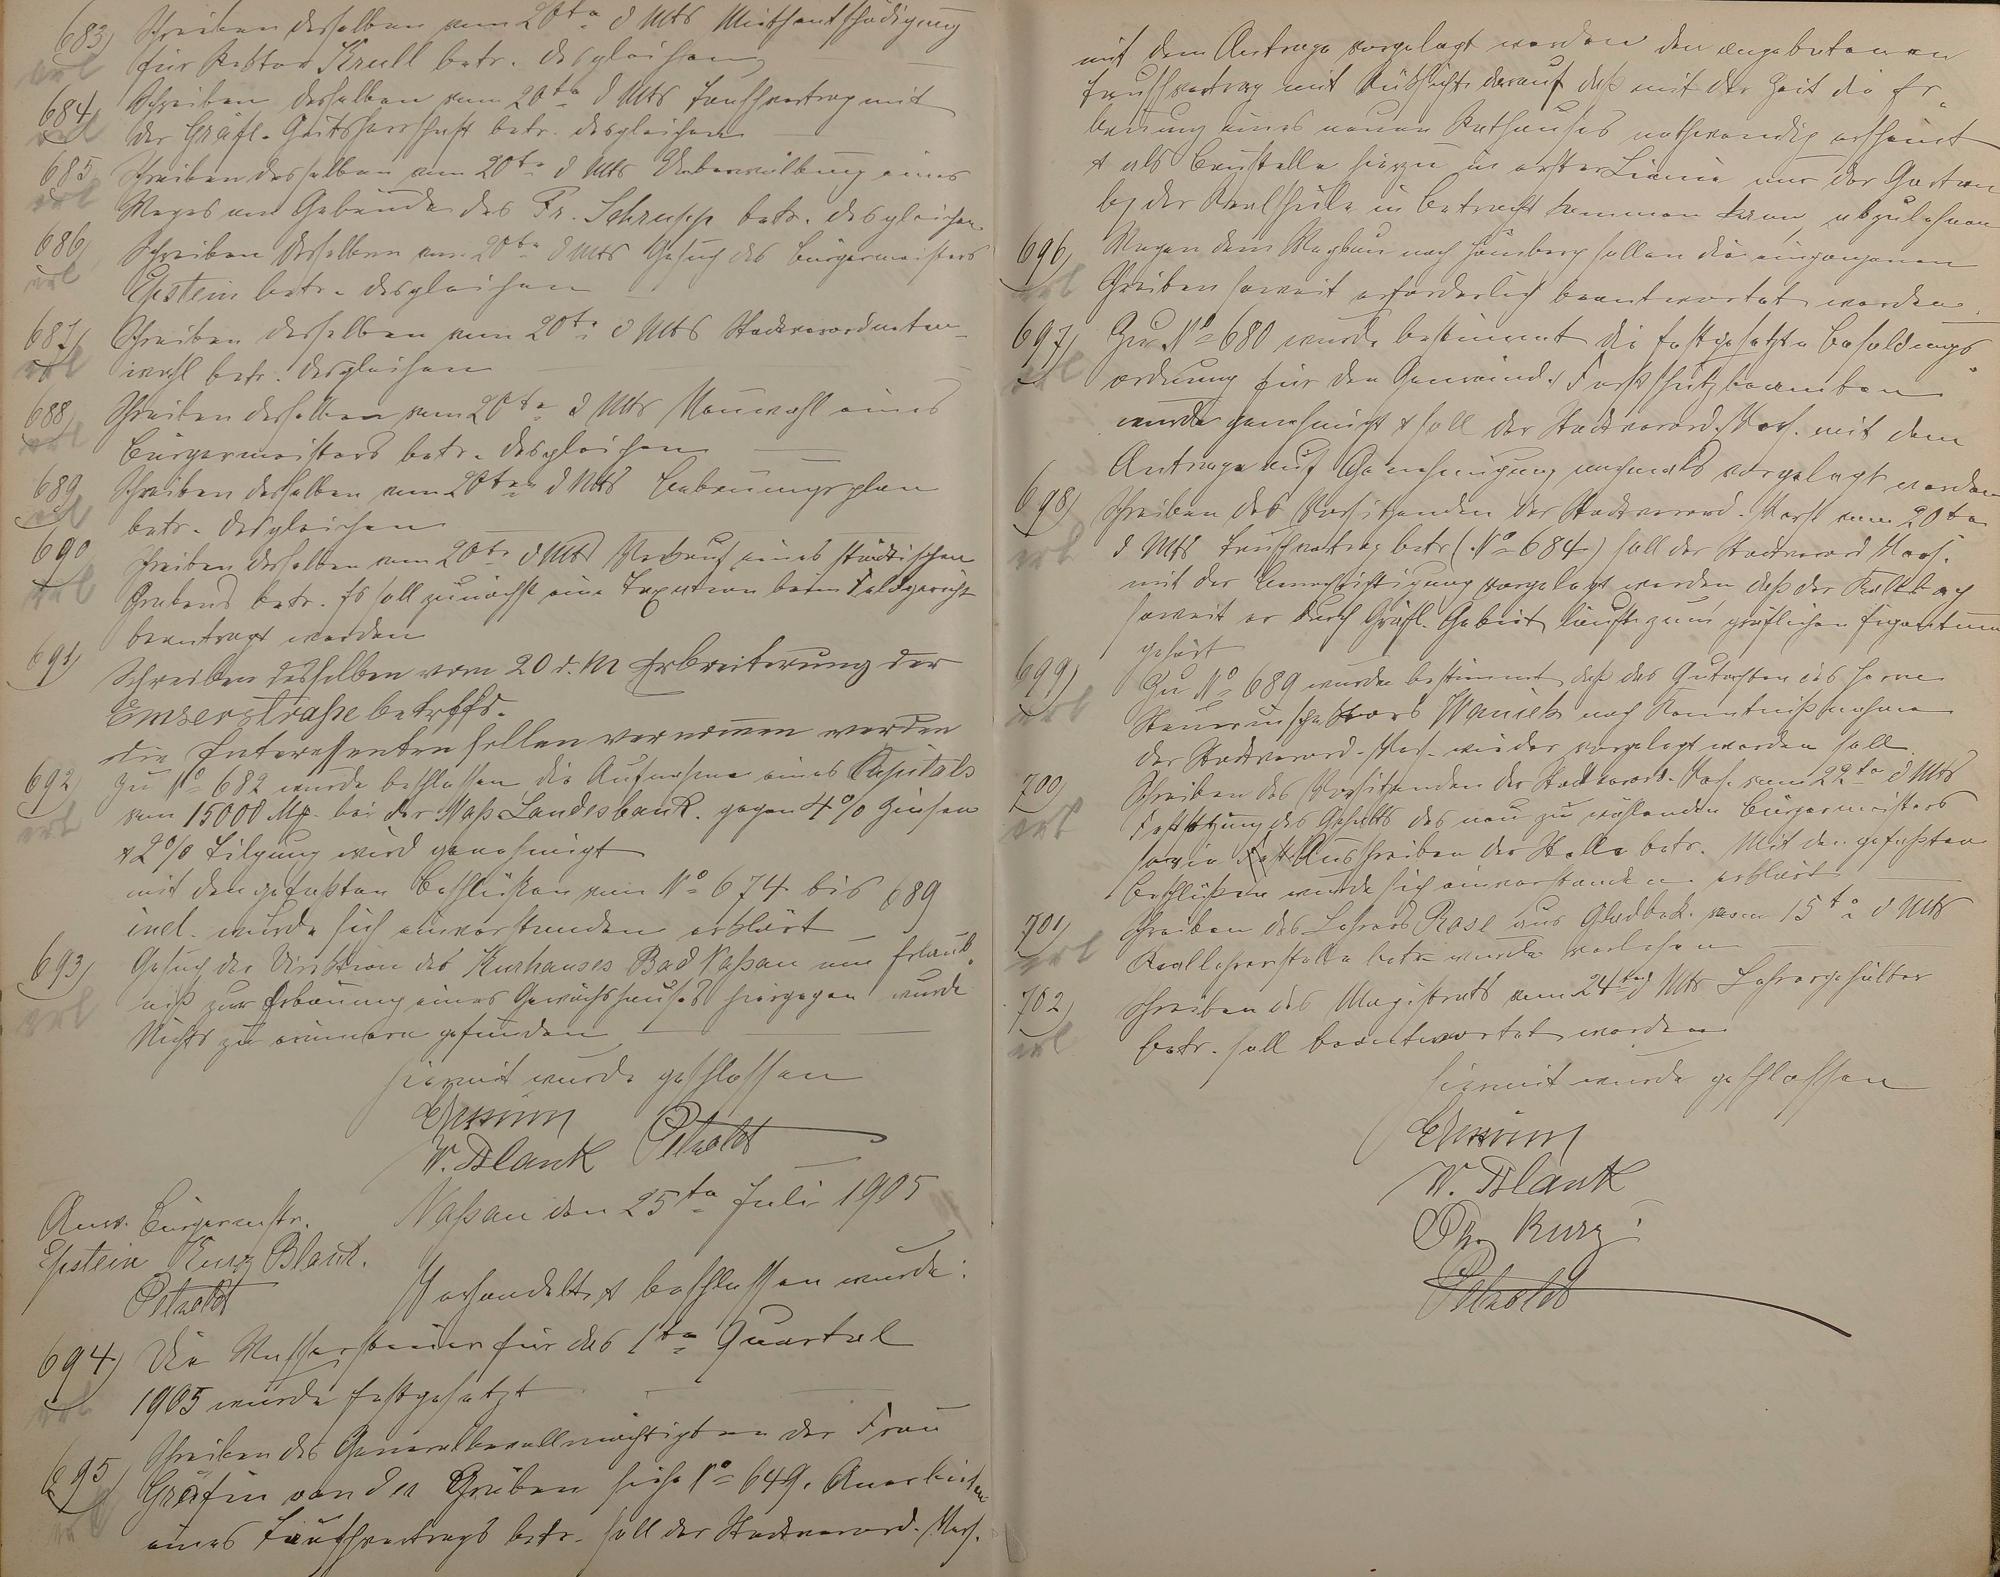 683) Schreiben desselben vom 20ten d Mts Miethentschädigung
erl
für Rektor Krull betr. desgleichen
684) Schreiben desselben vom 20ten d Mts Tauschvertrag mit
erl
der Gräfl. Gutsherrschaft betr. desgleichen
685) Schreiben desselben vom 20ten d Mts Ueberwölbung eines
erl
Weges am Gebäude des Fr. Schrupp betr. desgleichen
686) Schreiben desselben vom 20ten d Mts Gesuch des Bürgermeisters
erl
Epstein betr. desgleichen
687) Schreiben desselben vom 20ten d Mts Stadtverordneten-
erl
wahl betr. desgleichen
688) Schreiben desselben vom 20ten d Mts Neuwahl eines
erl
Bürgermeisters betr. desgleichen
689) Schreiben desselben vom 20ten d Mts Bebauungsplan
erl
betr. desgleichen
690) Schreiben desselben vom 20ten d Mts Verkauf eines städtischen
erl
Grabens betr. Es soll zunächst eine Taxation beim Feldgericht
beantragt werden
691) Schreiben desselben vom 20 d. M Erbreiterung der
Emserstraße betrffd.
die Interessenten sollen vernommen werden
692) Zu No 682 wurde beschlossen, die Aufnahme eines Kapitals
erl
von 15000 Mk. bei der Naß. Landesbank. gegen 4% Zinsen
& 2% Tilgung wird genehmigt
mit den gefaßten Beschlüßen von No 674 bis 689
incl. wurde sich einverstanden erklärt
693) Gesuch der Direktion des Kurhauses Bad Naßau um Erlaub-
erl
niß zur Erbauung eines Gewächshauses hiergegen wurde
Nichts zu erinnern gefunden
Hiermit wurde geschlossen
W. Blank Petzoldt
Naßau den 25ten Juli 1905
Anw. Bürgermstr.
Epstein Kurz Blank.
Petzoldt
Verhandelt & beschlossen wurde:
694) Die Wassersteuer für das 1te Quartal
erl
1905 wurde festgesetzt
695) Schreiben des Generalbevollmächtigten der Frau
erl
Gräfin von der Gröben siehe No 649. Anerbieten
eines Tauschvertrags betr. soll der Stadtverord. Vers.
mit dem Antrage vorgelegt werden den angebotenen
Tauschvertrag mit Rücksicht darauf daß mit der Zeit die Er-
bauung eines neuen Rathauses nothwendig erscheint
& als Baustelle hierzu in erster Linie nur der Garten
bei der Realschule in Betracht kommen kann, abzulehnen
696) Wegen dem Wegbau nach Hömberg sollen die eingegangenen
erl
Schreiben soweit erforderlich beantwortet werden.
697) Zu No 680 wurde bestimmt die festgesetzte Besoldungs-
erl
ordnung für den Gemeinde Forstschutzbeamten
wurde genehmigt & soll der Stadtverord. Vers. mit dem
Antrage auf Genehmigung nochmals vorgelegt werden
698) Schreiben des Vorsitzenden der Stadtverord. Vers. vom 20ten
erl
d Mts Tauschvertrag betr (No 684) soll der Stadtverord Vers.
mit der Benachrichtigung vorgelegt werden daß der Kaltbach
soweit er durch Gräfl. Gebiet läuft zum gräflichen Eigentum
gehört
699) Zu No 689 wurde bestimmt, daß das Gutachten des Herrn
erl
Steuerinspektors Waniek nach Kenntnißnahme
der Stadtverord. Vers. wieder vorgelegt werden soll.
700) Schreiben des Vorsitzenden der Stadtverord. Vers. vom 22ten d Mts
erl
Festsetzung des Gehalts des neu zu wählenden Bürgermeisters
sowie Ausschreiben der Stelle betr. Mit den gefaßten
Beschlüßen wurde sich einverstanden erklärt
701) Schreiben des Lehrers Rose aus Gladbeck vom 15ten d Mts
erl
Reallehrerstelle betr. wurde verlesen
702) Schreiben des Magistrats vom 24ten d Mts Lehrergehälter
erl
betr. soll beantwortet werden
Hiermit wurde geschlossen
W. Blank
Chr. Kurz
Petzoldt